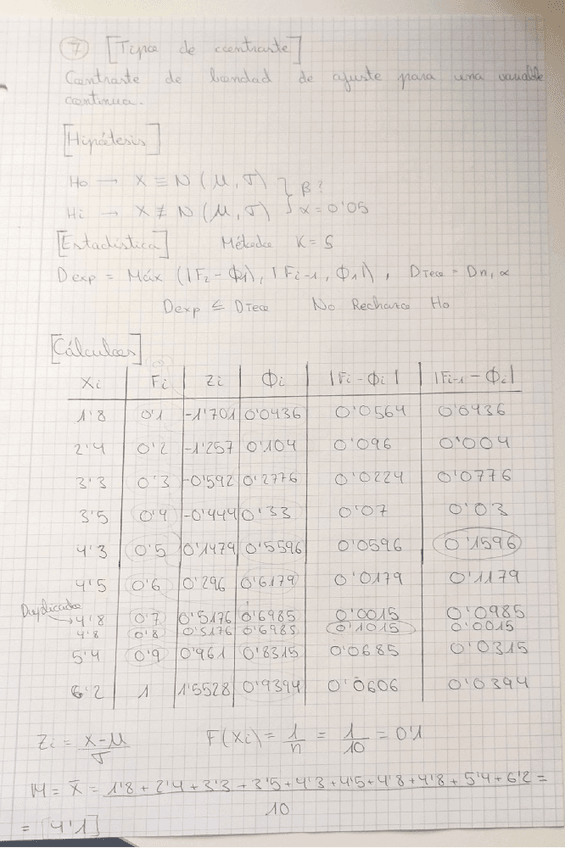 7 [Tipo de contraste]
Contraste de bondad de ajuste para una variable
continua.
[Hipótesis]
Ho → X ≡ N (μ, σ) } β?
Hi → X ≢ N (μ, σ) } α = 0'05
[Estadístico] Método K=S
Dexp = Máx (|Fi - Φi|, |Fi-1, Φi|), DTeo = Dn, α
Dexp ≤ DTeo No Rechazo Ho
[Cálculos]
Xi Fi Zi Φi |Fi - Φi| |Fi-1 - Φi|
1'8 0'1 -1'701 0'0436 0'0564 0'0436
2'4 0'2 -1'257 0'104 0'096 0'004
3'3 0'3 -0'592 0'2776 0'0224 0'0776
3'5 0'4 -0'444 0'33 0'07 0'03
4'3 0'5 0'1479 0'5596 0'0596 0'1596
4'5 0'6 0'296 0'6179 0'0179 0'1179
Duplicados → 4'8 0'7 0'5176 0'6985 0'0015 0'0985
4'8 0'8 0'5176 0'6985 0'1015 0'0015
5'4 0'9 0'961 0'8315 0'0685 0'0315
6'2 1 1'5528 0'9394 0'0606 0'0394
Zi = x-μ / σ F(Xi) = 1/n = 1/10 = 0'1
M = x̄ = 1'8 + 2'4 + 3'3 + 3'5 + 4'3 + 4'5 + 4'8 + 4'8 + 5'4 + 6'2 =
10
= [4'1]